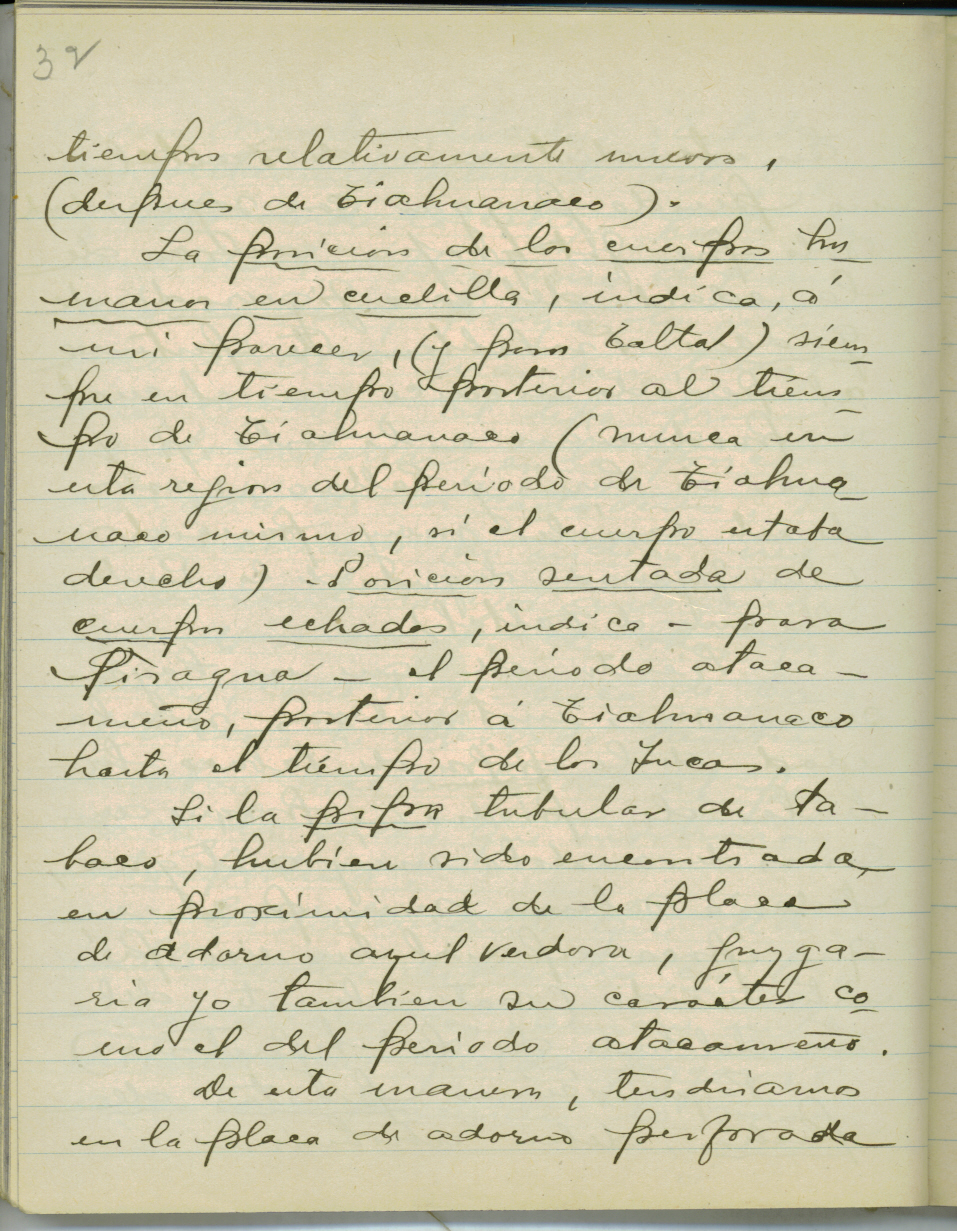 32
tiempos relativamente nuevos,
(despues de Tiahuanaco).
La posicion de los cuerpos hu
manos en cuclilla, indica, á
mi parecer, (y para Taltal) siem
pre en tiempo posterior al tiem
po de Tiahuanaco (nunca en
esta region del período de Tiahua
naco mismo, sí el cuerpo estaba
derecho). Posicion sentada de
cuerpos echados, indica - para
Pisagua - el período ataca-
meño, posterior á Tiahuanaco
hasta el tiempo de los Incas.
Si la pipa tubular de ta-
baco, hubiera sido encontrada
en proximidad de la placa
de adorno azul verdosa, juzga-
ria yo tambien su carácter co
mo el del periodo atacameño.
De esta manera, tendriamos
en la placa de adorno perforada